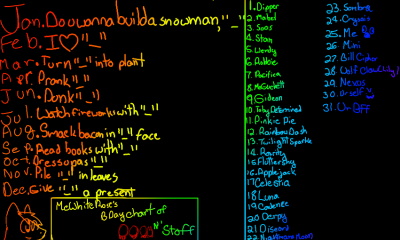 Jan. Do ou wanna builda snowman, "_"
Feb. I ♡ "_"
Mar. Turn "_" into plant
Apr. Prank "_"
Jun. Donk "_"
Jul. Watch fireworks with "_"
Aug. Smack bacon in "_" face
Sep. Read books with "_"
Oct. Dress up as "_"
Nov. Pile "_" in leaves
Dec. Give "_" a present
McWhiteRose's
B Day chart of
Stoff
1. Dipper
2. Mabel
3. Soos
4. Stan
5. Wendy
6. Robbie
7. Pacifica
8. McGucket
9. Gidean
10. Toby Determined
11. Pinkie Pie
12. Rainbow Dash
13. Twilight Sparkle
14. Rarity
15. Fluttershy
16. Applejack
17. Celestia
18. Luna
19. Cadence
20. Derpy
21. Discord
22. Nightmare Moon
23. Sombra
24. Crysalis
25. Me
26. Mini
27. Bill Cipher
28. Wolf Claw
29. Nevas
30. Urself
31. Ur BFF